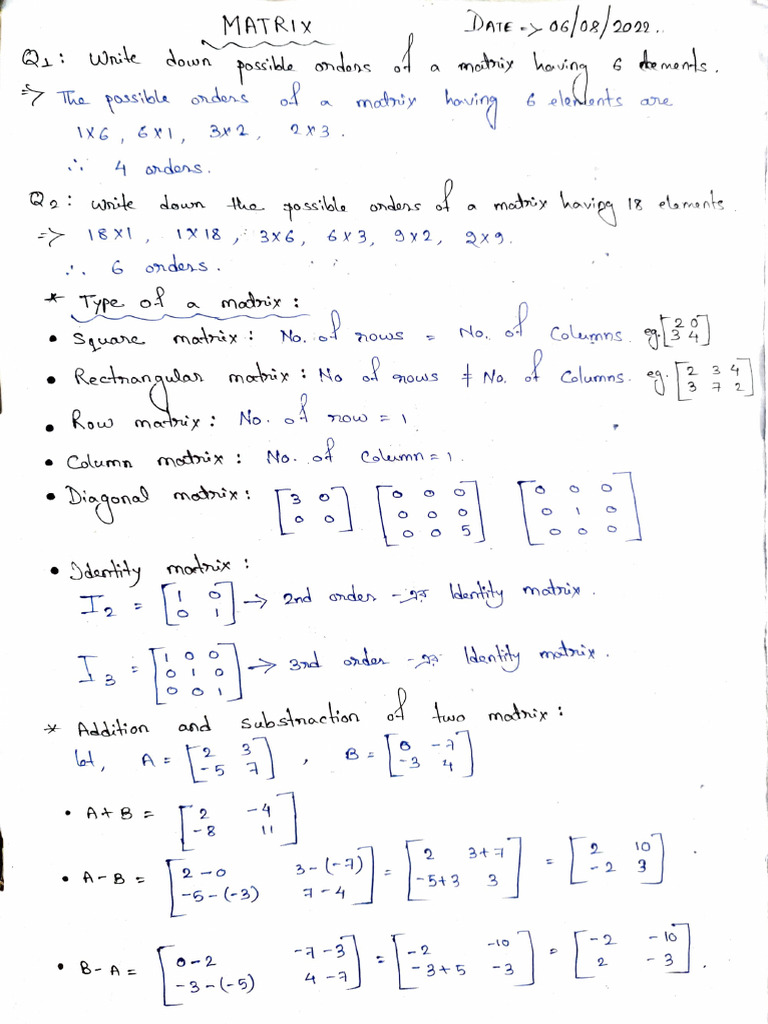 MATRIX DATE → 06/08/2022.
Q1: Write down possible orders of a matrix having 6 elements.
⇒ The possible orders of a matrix having 6 elements are
1×6, 6×1, 3×2, 2×3.
∴ 4 orders.
Q2: Write down the possible orders of a matrix having 18 elements.
⇒ 18×1, 1×18, 3×6, 6×3, 9×2, 2×9.
∴ 6 orders.
* Type of a matrix:
• Square matrix: No. of rows = No. of Columns. eg. [2 0; 3 4]
• Rectrangular matrix: No of rows ≠ No. of Columns. eg. [2 3 4; 3 7 2]
• Row matrix: No. of row = 1
• Column matrix: No. of Column = 1.
• Diagonal matrix: [3 0; 0 0] [0 0 0; 0 0 0; 0 0 5] [0 0 0; 0 1 0; 0 0 0]
• Identity matrix:
I2 = [1 0; 0 1] → 2nd order Identity matrix.
I3 = [1 0 0; 0 1 0; 0 0 1] → 3rd order Identity matrix.
* Addition and substraction of two matrix:
let, A = [2 3; -5 7], B = [0 -7; -3 4]
• A+B = [2 -4; -8 11]
• A-B = [2-0 3-(-7); -5-(-3) 7-4] = [2 3+7; -5+3 3] = [2 10; -2 3].
• B-A = [0-2 -7-3; -3-(-5) 4-7] = [-2 -10; -3+5 -3] = [-2 -10; 2 -3].